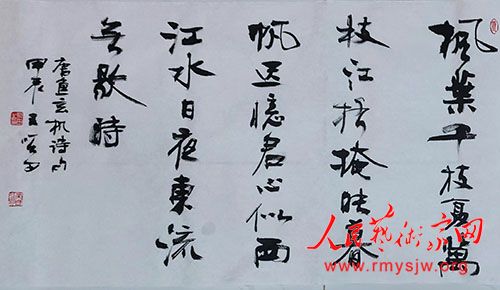 楓葉千枝复萬
枝江橋掩映暮
帆迟憶君心似西
江水日夜東流
無歇時
唐魚玄机诗句
甲辰王
人民藝術家网
www.rmysjw.org